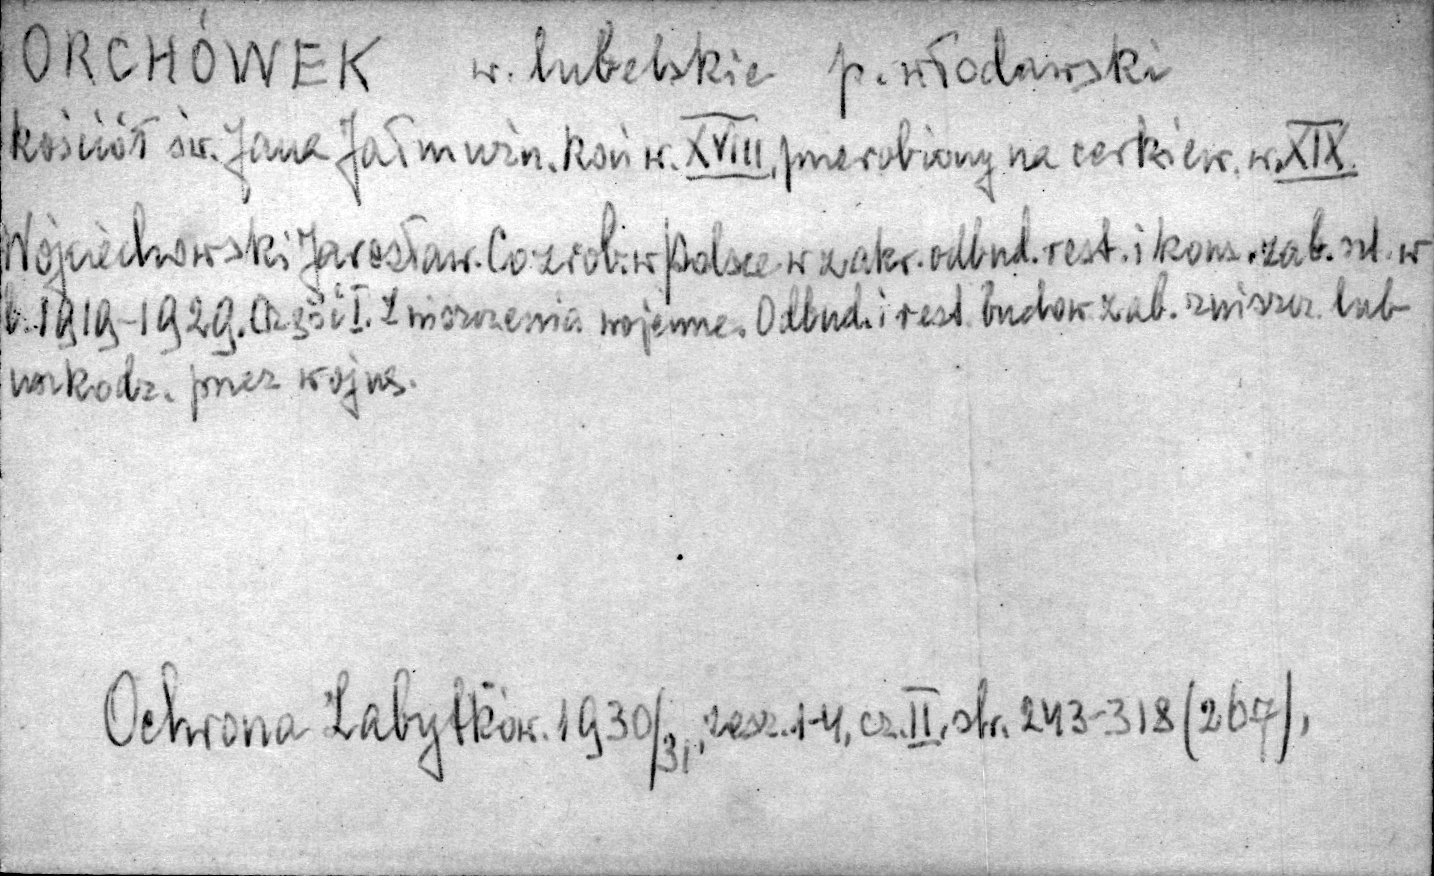 ORCHÓWEK w. lubelskie p. włodawski
kościół św. Jana Jałmużn. koń w. XVIII, przerobiony na cerkiew. w. XIX.
Wojciechowski Jarosław. Co zrob. w Polsce w zakr. odbud. rest. i kons. zab. szt. w
l. 1919-1929. Część I. Zniszczenia wojenne. Odbud. i rest. budow. zab. zniszcz. lub
uszkodz. przez wojnę.
Ochrona Zabytków. 1930/31, zesz. 1-4, cz. II, str. 243-318 (267),